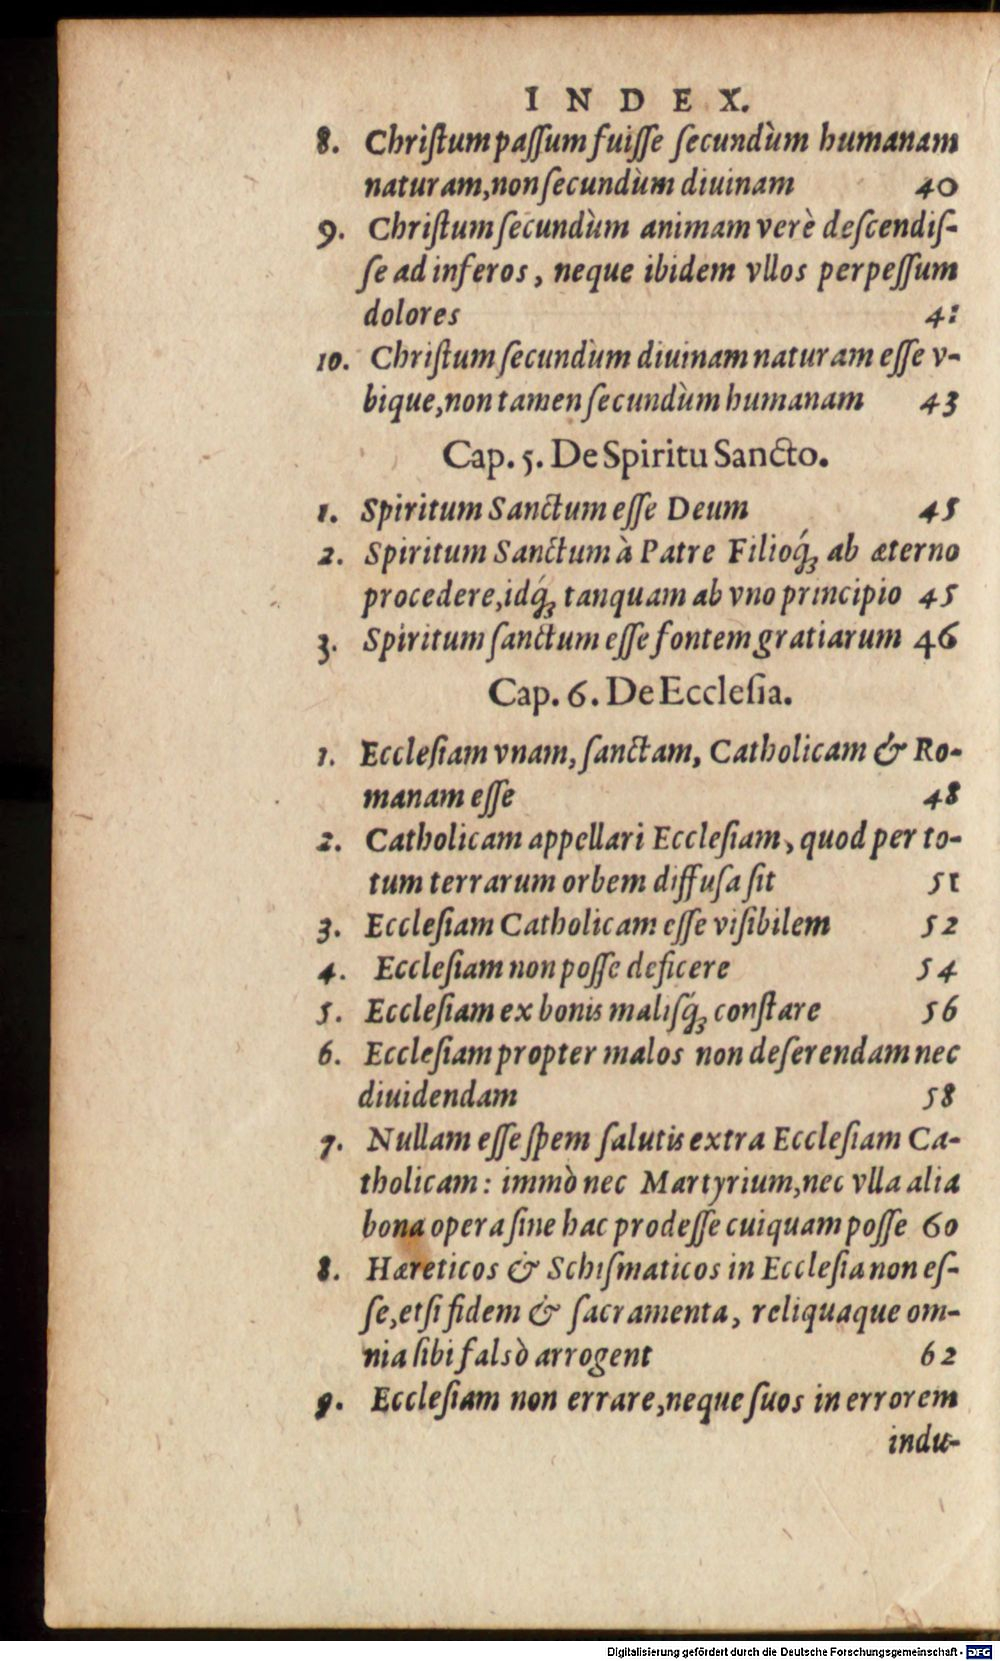 INDEX.
8. Chriſtum paſſum fuiſſe ſecundùm humanam
naturam, non ſecundùm diuinam 40
9. Chriſtum ſecundùm animam verè deſcendiſ-
ſe ad inferos, neque ibidem vllos perpeſſum
dolores 41
10. Chriſtum ſecundùm diuinam naturam eſſe v-
bique, non tamen ſecundùm humanam 43
Cap. 5. De Spiritu Sancto.
1. Spiritum Sanctum eſſe Deum 45
2. Spiritum Sanctum à Patre Filioq́ꝫ ab æterno
procedere, idq́ꝫ tanquam ab vno principio 45
3. Spiritum ſanctum eſſe fontem gratiarum 46
Cap. 6. De Eccleſia.
1. Eccleſiam vnam, ſanctam, Catholicam & Ro-
manam eſſe 48
2. Catholicam appellari Eccleſiam, quod per to-
tum terrarum orbem diffuſa ſit 51
3. Eccleſiam Catholicam eſſe viſibilem 52
4. Eccleſiam non poſſe deficere 54
5. Eccleſiam ex bonis maliſq́ꝫ conſtare 56
6. Eccleſiam propter malos non deſerendam nec
diuidendam 58
7. Nullam eſſe ſpem ſalutis extra Eccleſiam Ca-
tholicam: immò nec Martyrium, nec vlla alia
bona opera ſine hac prodeſſe cuiquam poſſe 60
8. Hæreticos & Schiſmaticos in Eccleſia non eſ-
ſe, etſi fidem & ſacramenta, reliquaque om-
nia ſibi falsò arrogent 62
9. Eccleſiam non errare, neque ſuos in errorem
indu-
Digitalisierung gefördert durch die Deutsche Forschungsgemeinschaft - DFG